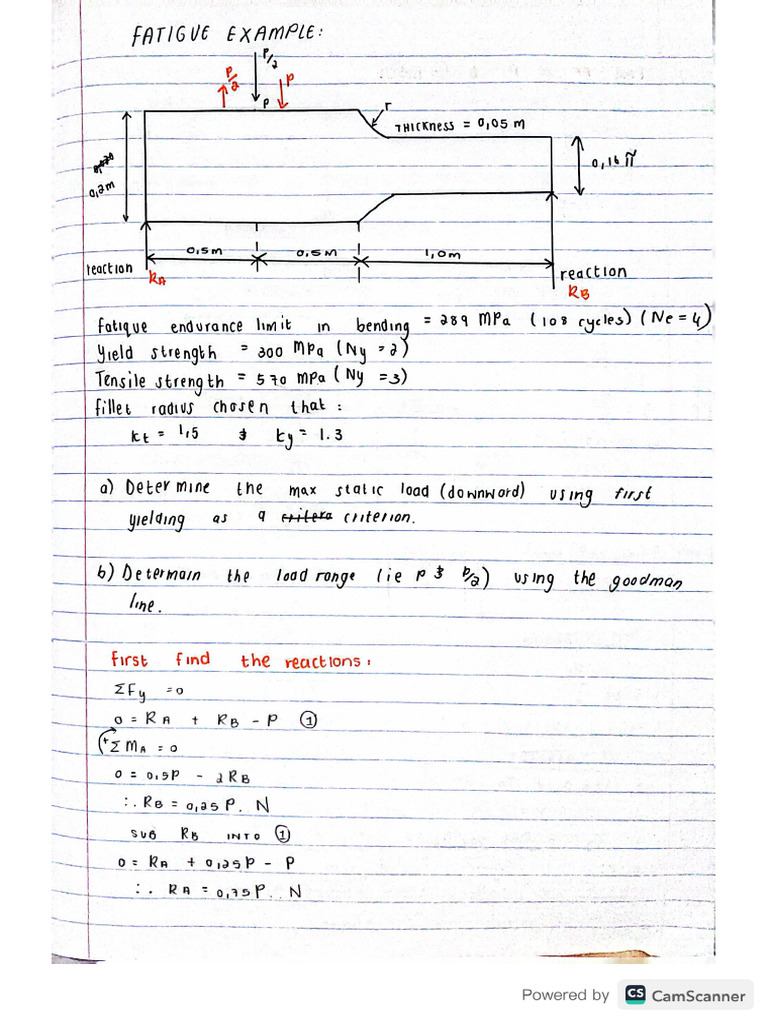 FATIGUE EXAMPLE:
P/2
P/2
P
P
r
THICKNESS = 0,05 m
0,2m
0,5m
0,5m
1,0m
reaction
RA
reaction
RB
Fatique endurance limit in bending = 289 MPa (108 cycles) (Ne = 4)
Yield strength = 300 MPa (Ny = 2)
Tensile strength = 570 MPa (Ny = 3)
fillet radius chosen that :
kt = 1,5 & ky = 1.3
a) Determine the max static load (downward) using first
yielding as a critera criterion.
b) Determain the load range (ie P & P/2) using the goodman
line.
First find the reactions:
ΣFy = 0
0 = RA + RB - P ①
+ΣMA = 0
0 = 0,5P - 2RB
∴ RB = 0,25P. N
SUB RB INTO ①
0 = RA + 0,25P - P
∴ RA = 0,75P. N
Powered by CS CamScanner